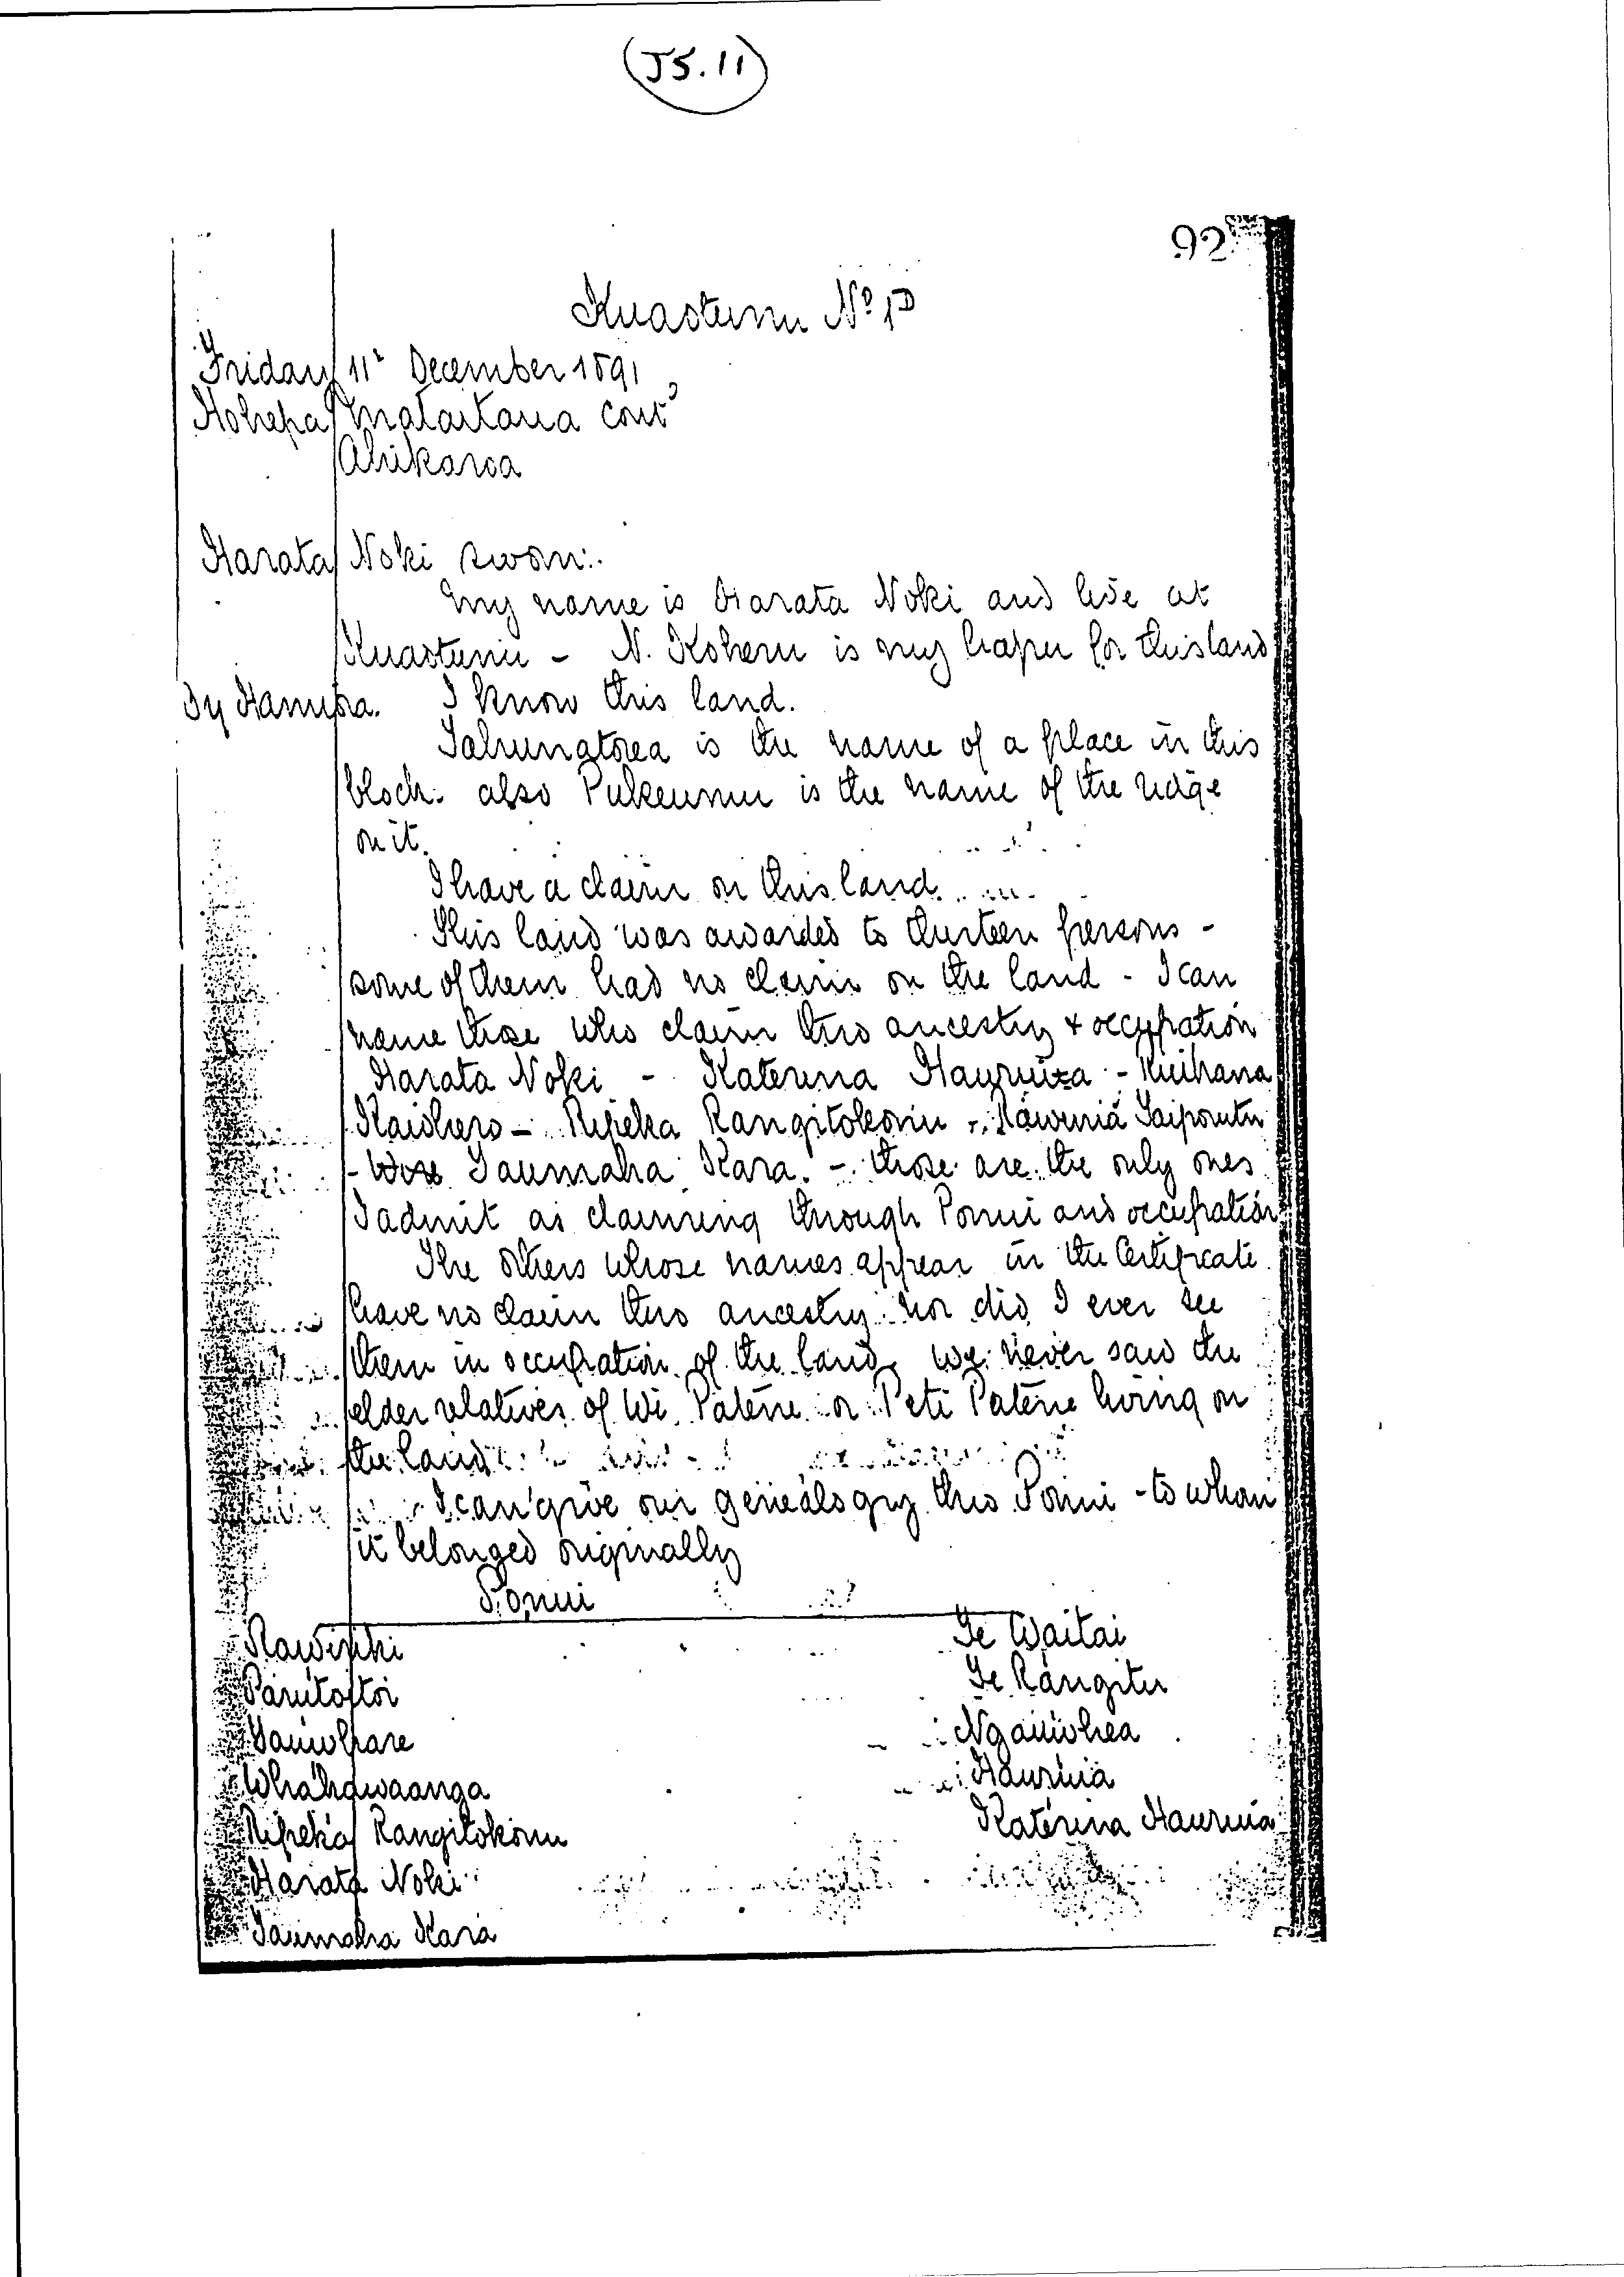 (J5.11)
92
Kuaotunu No 1D
Friday 11th December 1891
Hohepa Mataitaua cont'd
Ahikaroa
Harata Noki sworn:
My name is Harata Noki and live at
Kuaotunu - N. Koheru is my hapu for this land
By Hamuera. I know this land.
is the name of a place in this
block. also Pukeumu is the name of the ridge
on it.
I have a claim on this land
This land was awarded to thirteen persons -
some of them had no claim on the land - I can
name those who claim thro ancestry & occupation
Harata Noki - Katerina Hauruia - Ruihana
Kaiohero - Ripeka Rangitokonu - Rawinia Taiporutu
- Taumaha Kara. - those are the only ones
I admit as claiming through Ponui and occupation
The others whose names appear in the Certificate
have no claim thro ancestry nor did I ever see
them in occupation of the land, we never saw the
elder relatives of Wi Patene or Peti Patene living on
the land
I can give our genealogy thro Ponui - to whom
it belonged originally
Ponui
Rawiriki Te Waitai
Parutoitoi Te Rangitu
Tauwhare Ngauwhea
Whakawaanga Hauruia
Ripeka Rangitokonu Katerina Hauruia
Harata Noki
Taumaha Kara